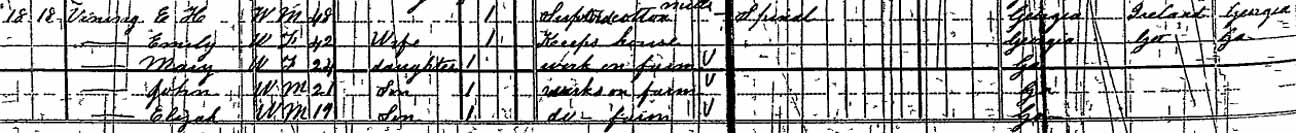 18 18 Vining E H W M 48 1 Supt cotton mills Spinal Georgia Ireland Georgia
—— Emily W F 42 Wife 1 Keeps house Georgia Ga
—— Mary W F 24 daughter 1 work on farm V Ga
—— John W M 21 Son 1 works on farm V Ga
—— Elizah W M 19 Son 1 do - farm V Ga